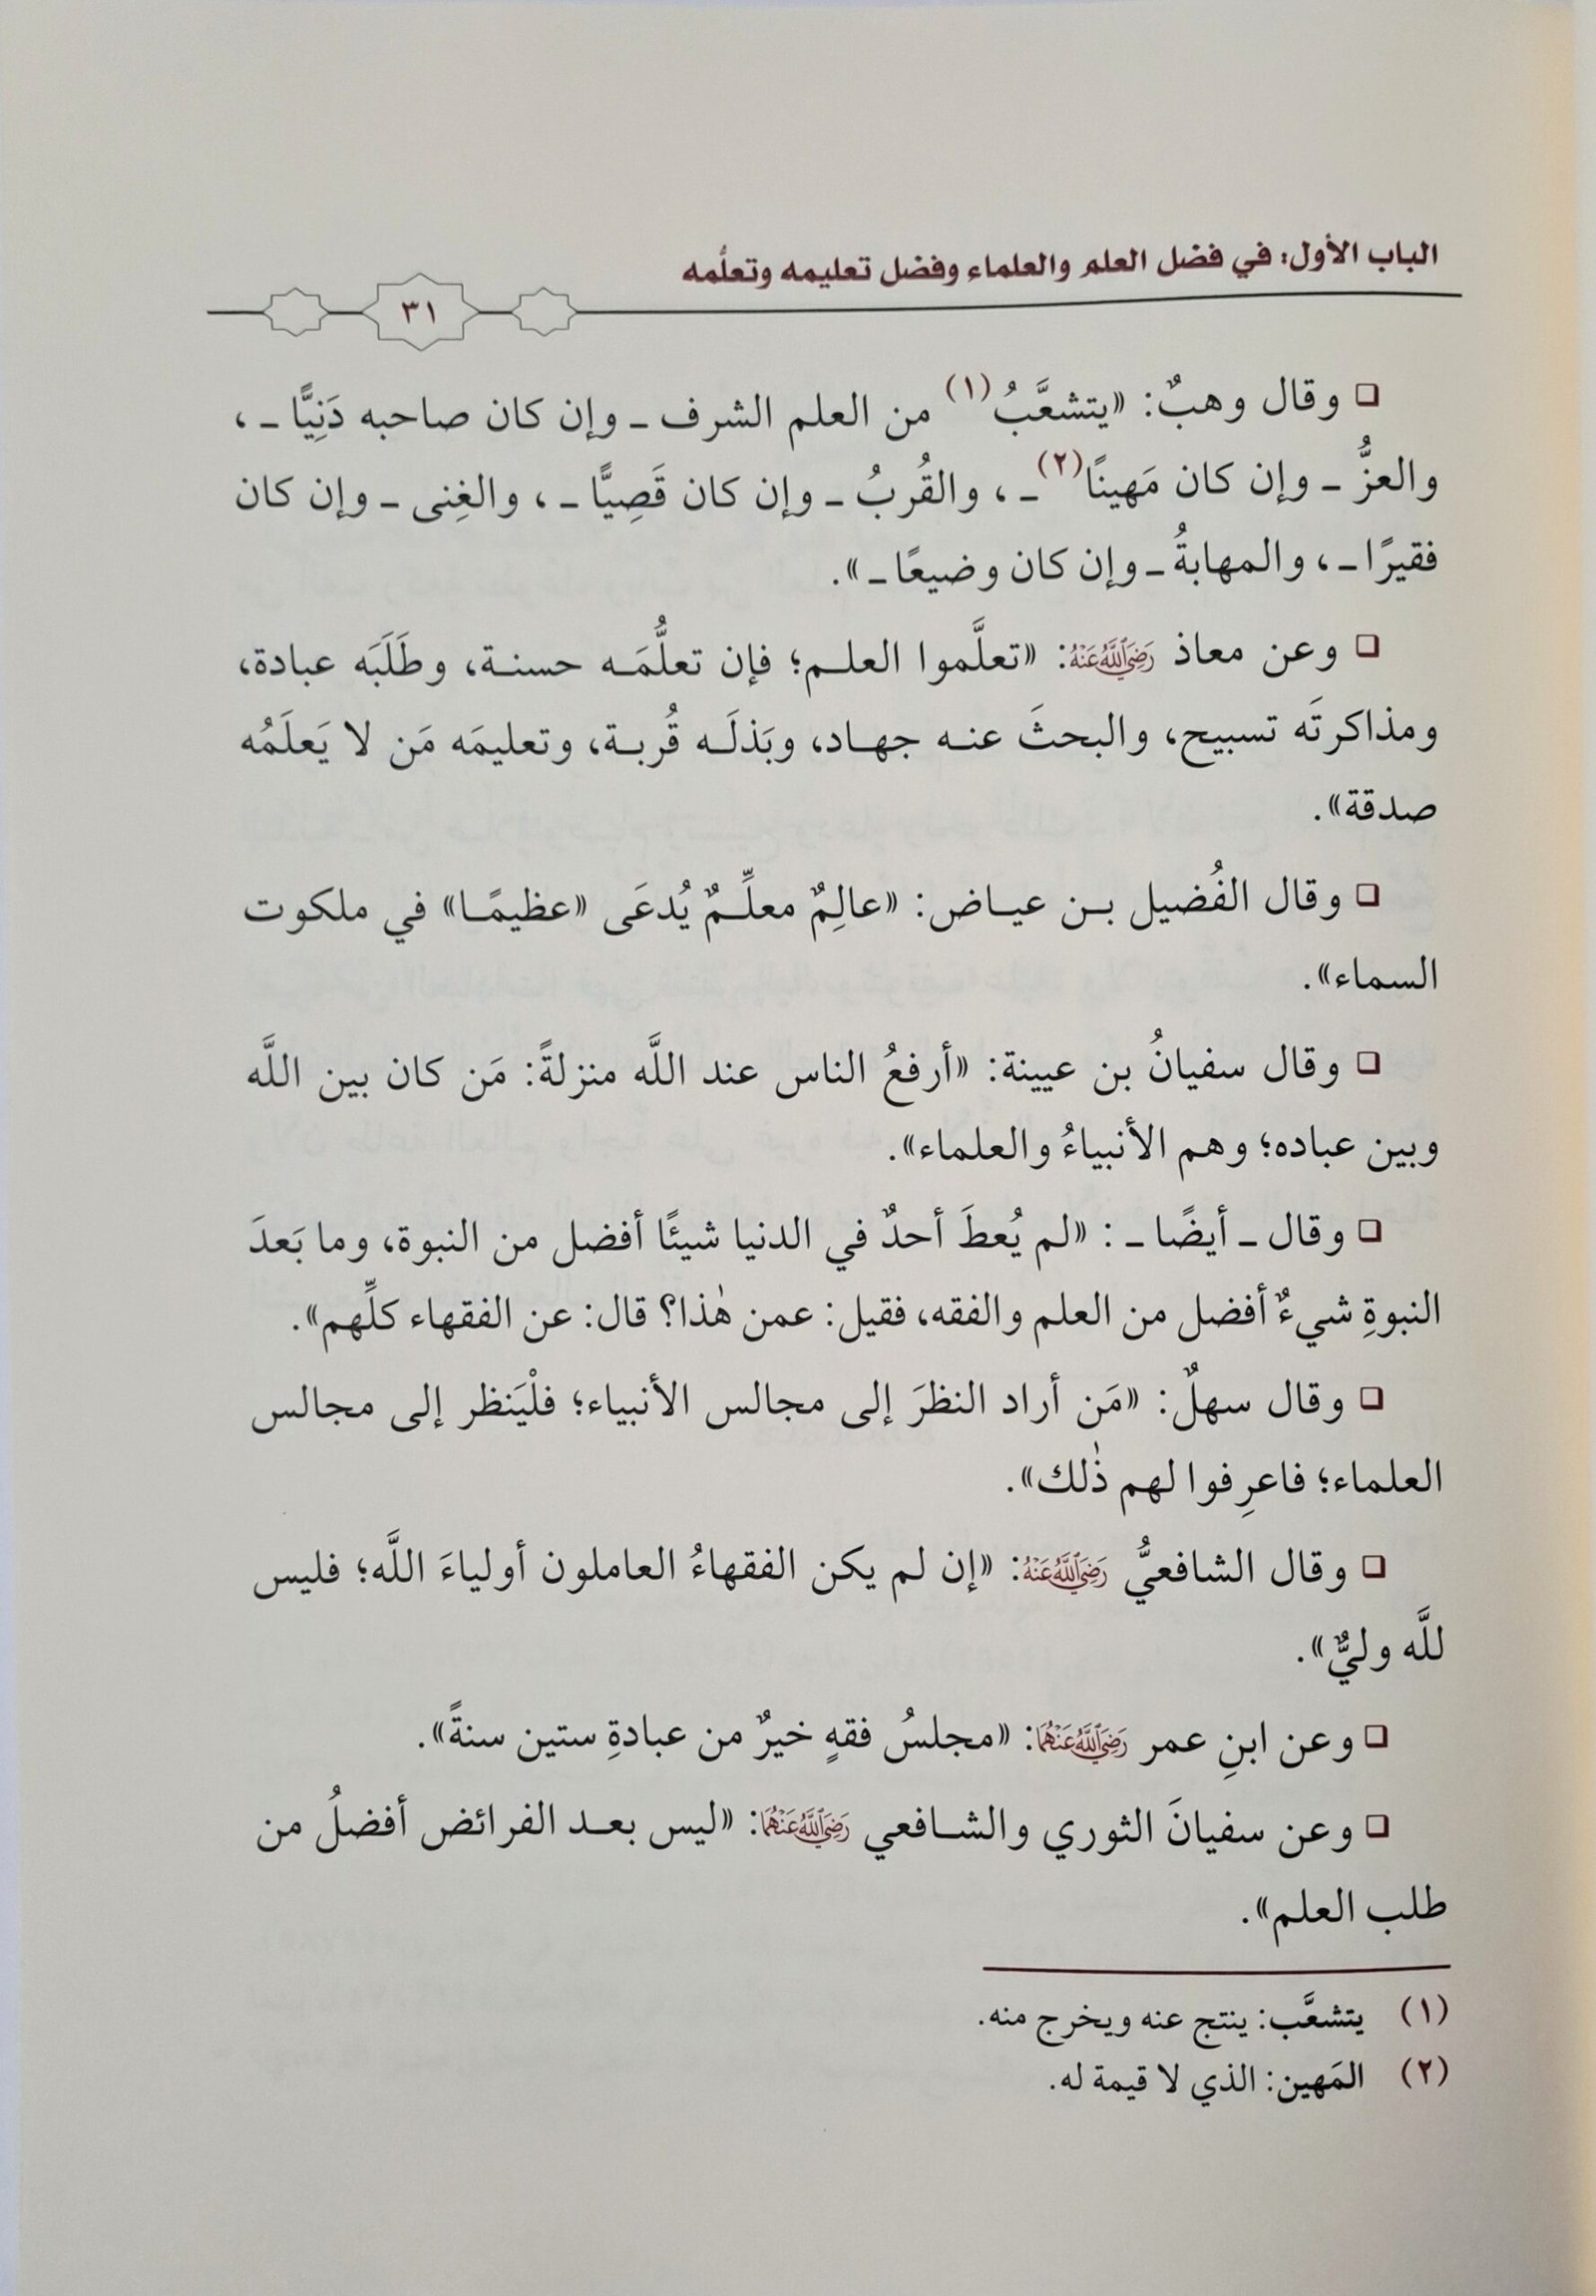 الباب الأول: في فضل العلم والعلماء وفضل تعليمه وتعلُّمه
٣١
❑ وقال وهبٌ: «يتشعَّبُ(١) من العلم الشرف ـ وإن كان صاحبه دَنِيًّا ـ ،
والعزُّ ـ وإن كان مَهينًا(٢)ـ ، والقُربُ ـ وإن كان قَصِيًّا ـ ، والغِنى ـ وإن كان
فقيرًا ـ ، والمهابةُ ـ وإن كان وضيعًا ـ».
❑ وعن معاذ رَضِيَ اللَّهُ عَنْهُ: «تعلَّموا العلـم؛ فإن تعلُّمَـه حسنـة، وطَلَبَه عبادة،
ومذاكرتَه تسبيح، والبحثَ عنـه جهـاد، وبَذلَـه قُربـة، وتعليمَه مَن لا يَعلَمُه
صدقة».
❑ وقال الفُضيل بـن عيـاض: «عالِمٌ معلِّـمٌ يُدعَى «عظيمًـا» في ملكوت
السماء».
❑ وقال سفيانُ بن عيينة: «أرفعُ الناس عند اللَّه منزلةً: مَن كان بين اللَّه
وبين عباده؛ وهم الأنبياءُ والعلماء».
❑ وقال ـ أيضًا ـ : «لم يُعطَ أحدٌ في الدنيا شيئًا أفضل من النبوة، وما بَعدَ
النبوةِ شيءٌ أفضل من العلم والفقه، فقيل: عمن هٰذا؟ قال: عن الفقهاء كلِّهم».
❑ وقال سهلٌ: «مَن أراد النظرَ إلى مجالس الأنبياء؛ فلْيَنظر إلى مجالس
العلماء؛ فاعرِفوا لهم ذٰلك».
❑ وقال الشافعيُّ رَضِيَ اللَّهُ عَنْهُ: «إن لم يكن الفقهاءُ العاملون أولياءَ اللَّه؛ فليس
للَّه وليٌّ».
❑ وعن ابنِ عمر رَضِيَ اللَّهُ عَنْهُمَا: «مجلسُ فقهٍ خيرٌ من عبادةِ ستين سنةً».
❑ وعن سفيانَ الثوري والشـافعي رَضِيَ اللَّهُ عَنْهُمَا: «ليس بعـد الفرائض أفضلُ من
طلب العلم».
(١) يتشعَّب: ينتج عنه ويخرج منه.
(٢) المَهين: الذي لا قيمة له.